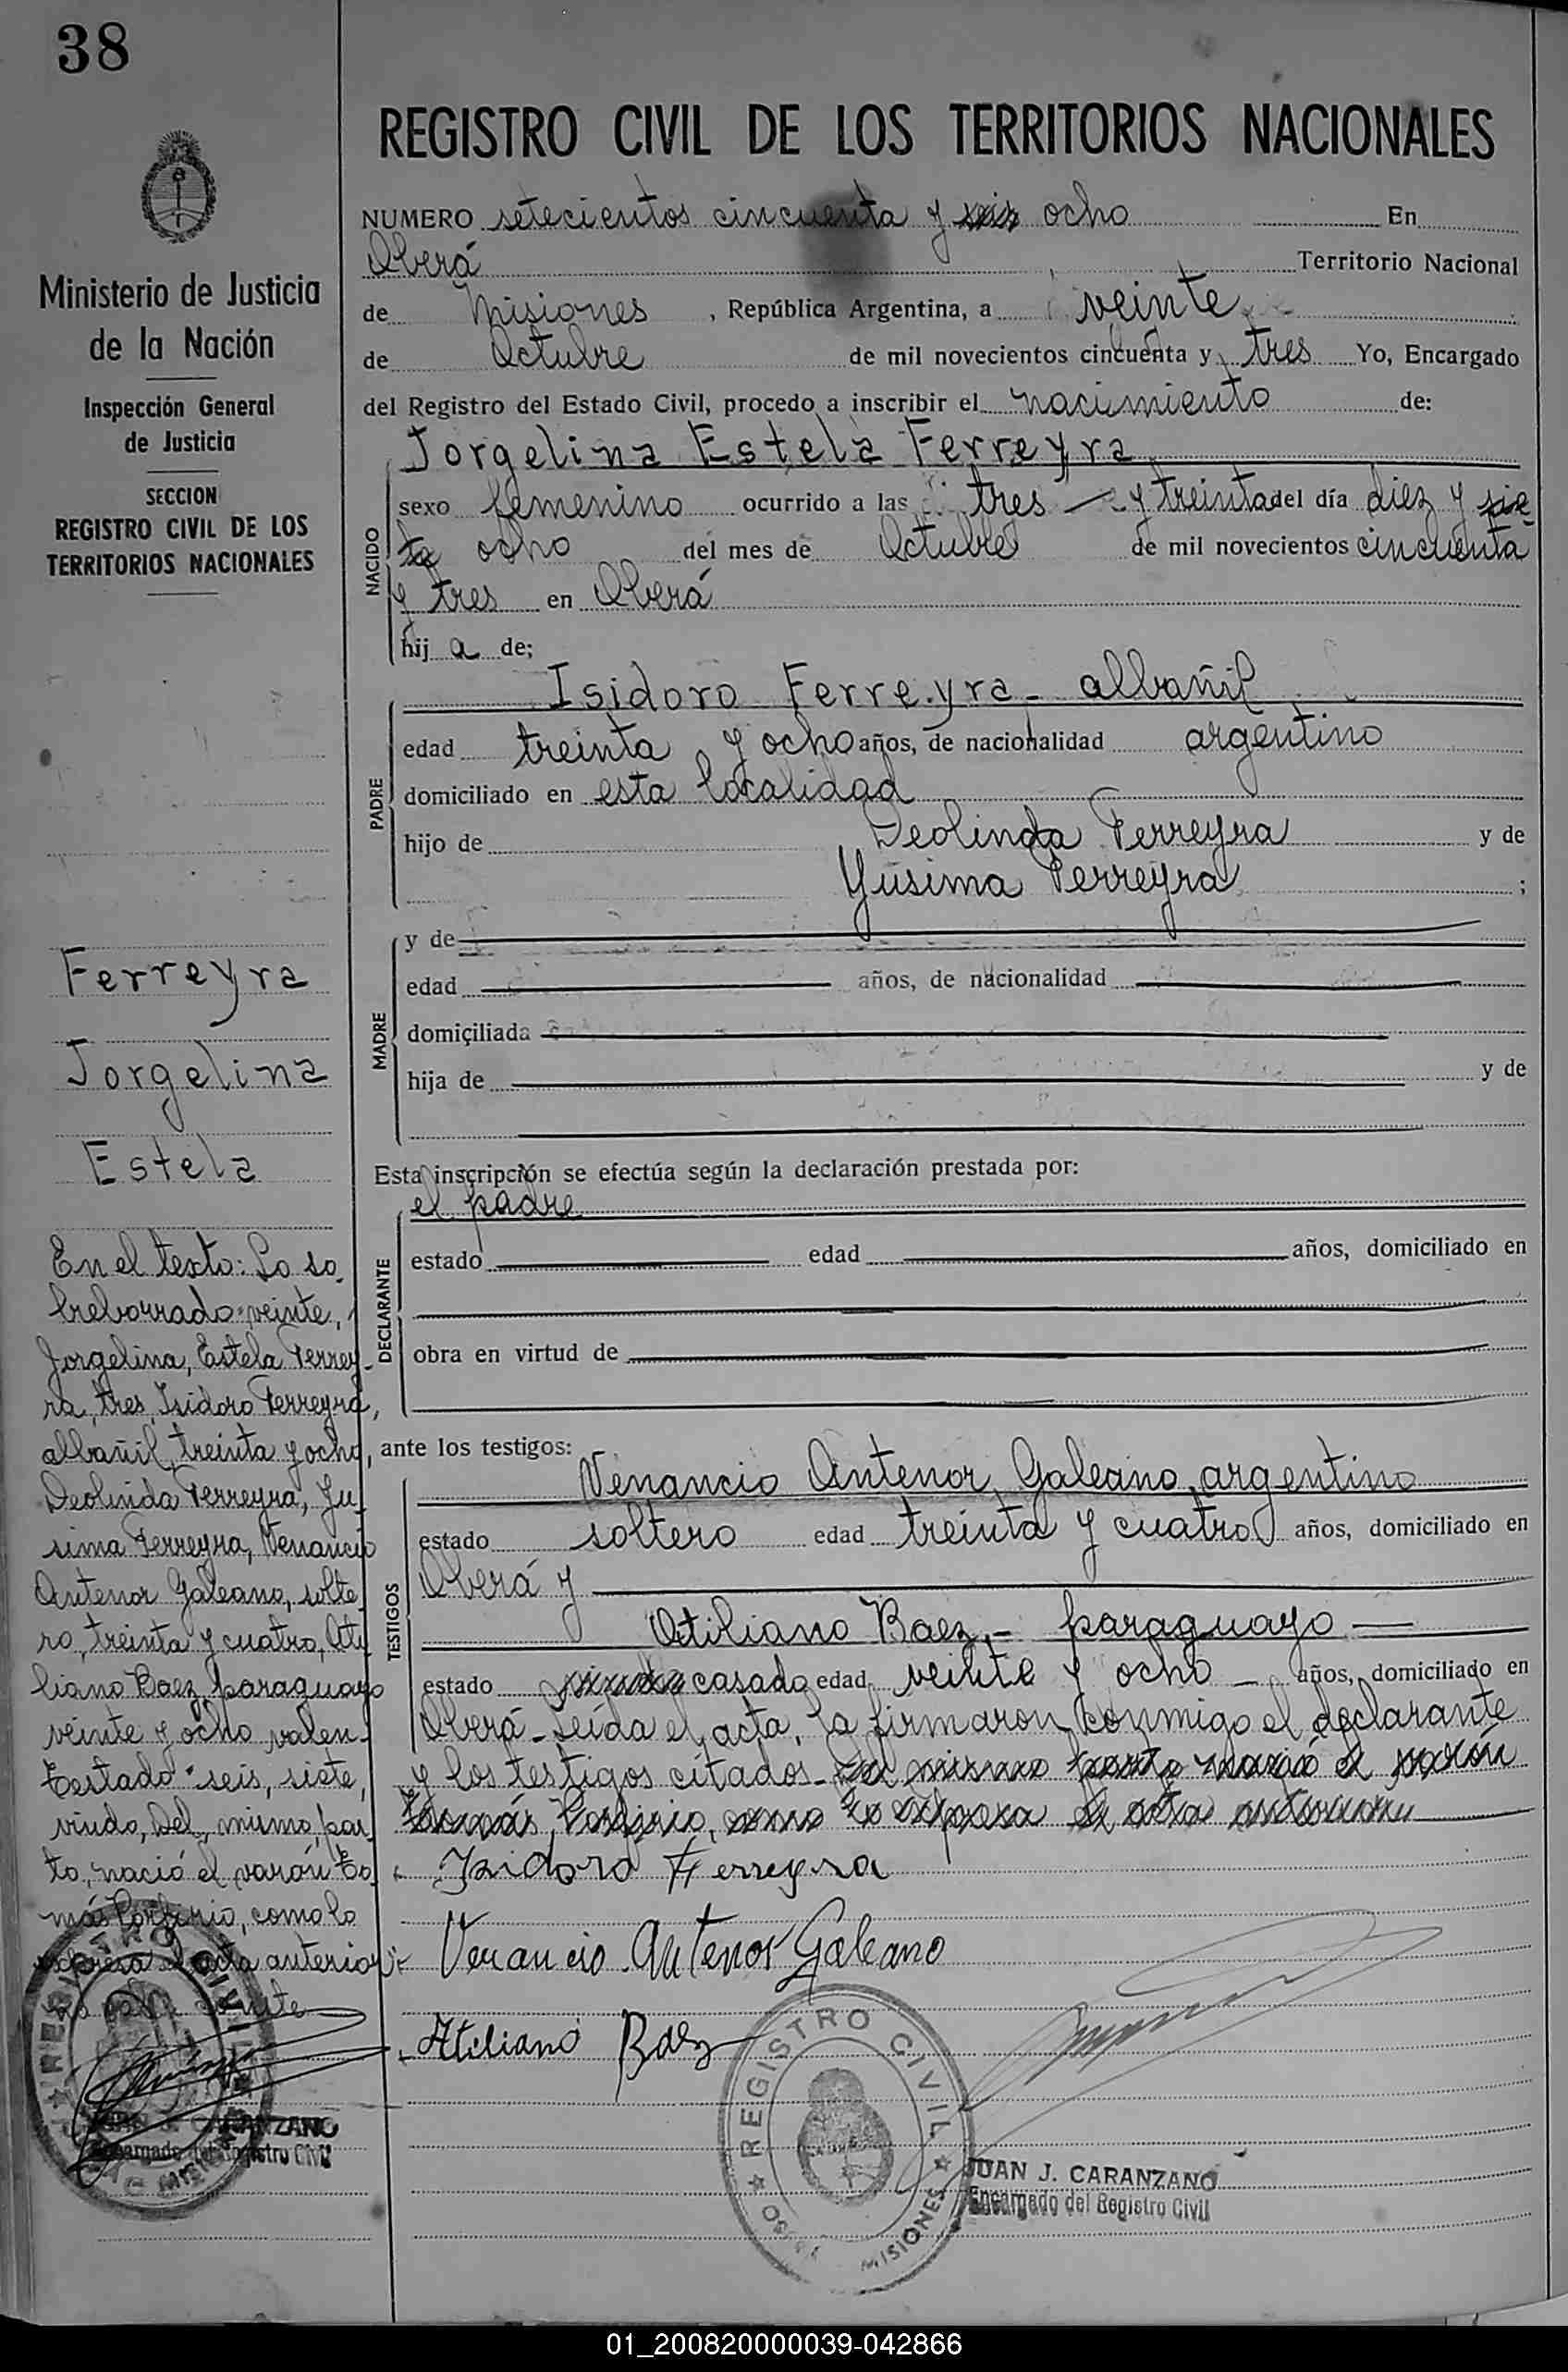 38
Ministerio de Justicia
de la Nación
Inspección General
de Justicia
SECCION
REGISTRO CIVIL DE LOS
TERRITORIOS NACIONALES
REGISTRO CIVIL DE LOS TERRITORIOS NACIONALES
NUMERO setecientos cincuenta y seis ocho En
Oberá Territorio Nacional
de Misiones, República Argentina, a veinte
de Octubre de mil novecientos cincuenta y tres Yo, Encargado
del Registro del Estado Civil, procedo a inscribir el nacimiento de:
Jorgelina Estela Ferreyra
NACIDO
sexo femenino ocurrido a las tres y treinta del día diez y sie-
te ocho del mes de Octubre de mil novecientos cincuenta
y tres en Oberá
hij a de;
PADRE
Isidoro Ferreyra - albañil
edad treinta y ocho años, de nacionalidad argentino
domiciliado en esta localidad
hijo de Deolinda Ferreyra y de
Yusima Ferreyra ;
MADRE
y de
edad años, de nacionalidad
domiciliada
hija de y de
Esta inscripción se efectúa según la declaración prestada por:
DECLARANTE
el padre
estado edad años, domiciliado en
obra en virtud de
ante los testigos:
TESTIGOS
Venancio Antenor Galeano, argentino
estado soltero edad treinta y cuatro años, domiciliado en
Oberá y
Atiliano Baez,- paraguayo
estado viudo casado edad veinte y ocho años, domiciliado en
Oberá - Leída el acta, la firmaron conmigo el declarante
y los testigos citados - Del mismo parto nació el varón
Tomás Porfirio, como lo expresa el acta anterior
Isidoro Ferreyra
Venancio Antenor Galeano
Atiliano Baez
REGISTRO CIVIL
MISIONES
JUAN J. CARANZANO
Encargado del Registro Civil
Ferreyra
Jorgelina
Estela
En el texto: Lo so-
breborrado: veinte,
Jorgelina, Estela Ferrey-
ra, tres, Isidoro Ferreyra,
albañil, treinta y ocho,
Deolinda Ferreyra, Yu-
sima Ferreyra, Venancio
Antenor Galeano, solte-
ro, treinta y cuatro, Ati-
liano Baez, paraguayo
veinte y ocho valen-
Testado: seis, siete,
viudo, Del, mismo, par-
to, nació el varón To-
más Porfirio, como lo
expresa el acta anterior:-
no vale
REGISTRO CIVIL
CARANZANO
Encargado del Registro Civil
01_200820000039-042866